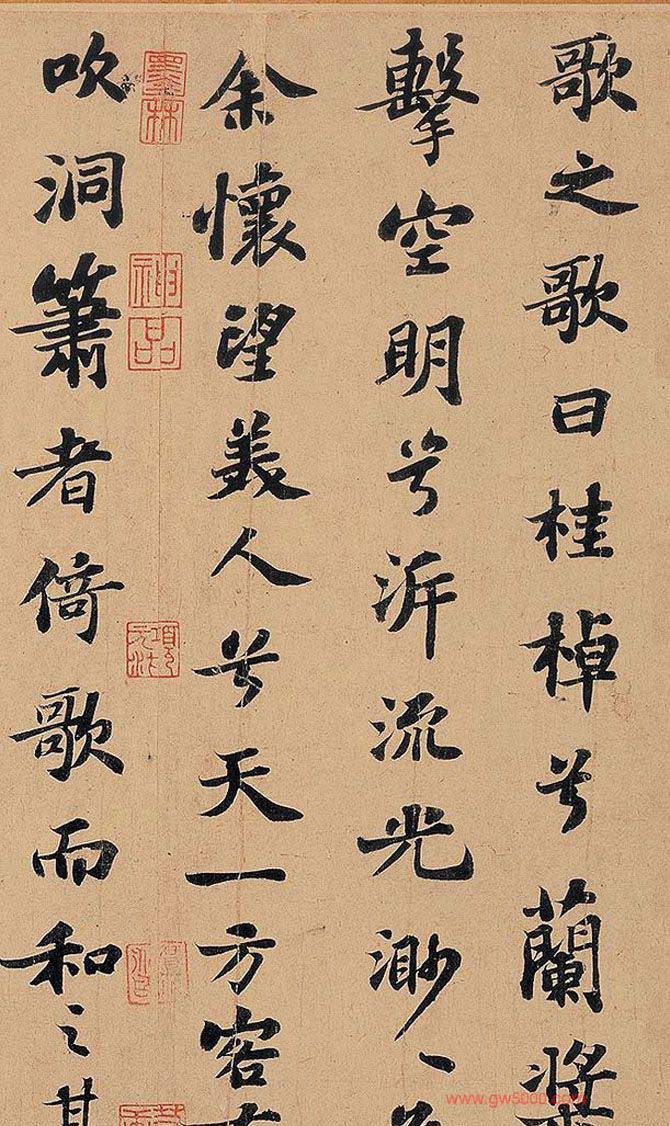 歌之歌曰桂棹兮蘭
擊空明兮泝流光渺〻
余懷望美人兮天一方客
吹洞簫者倚歌而和之其
墨林
神品
www.gw5000.com